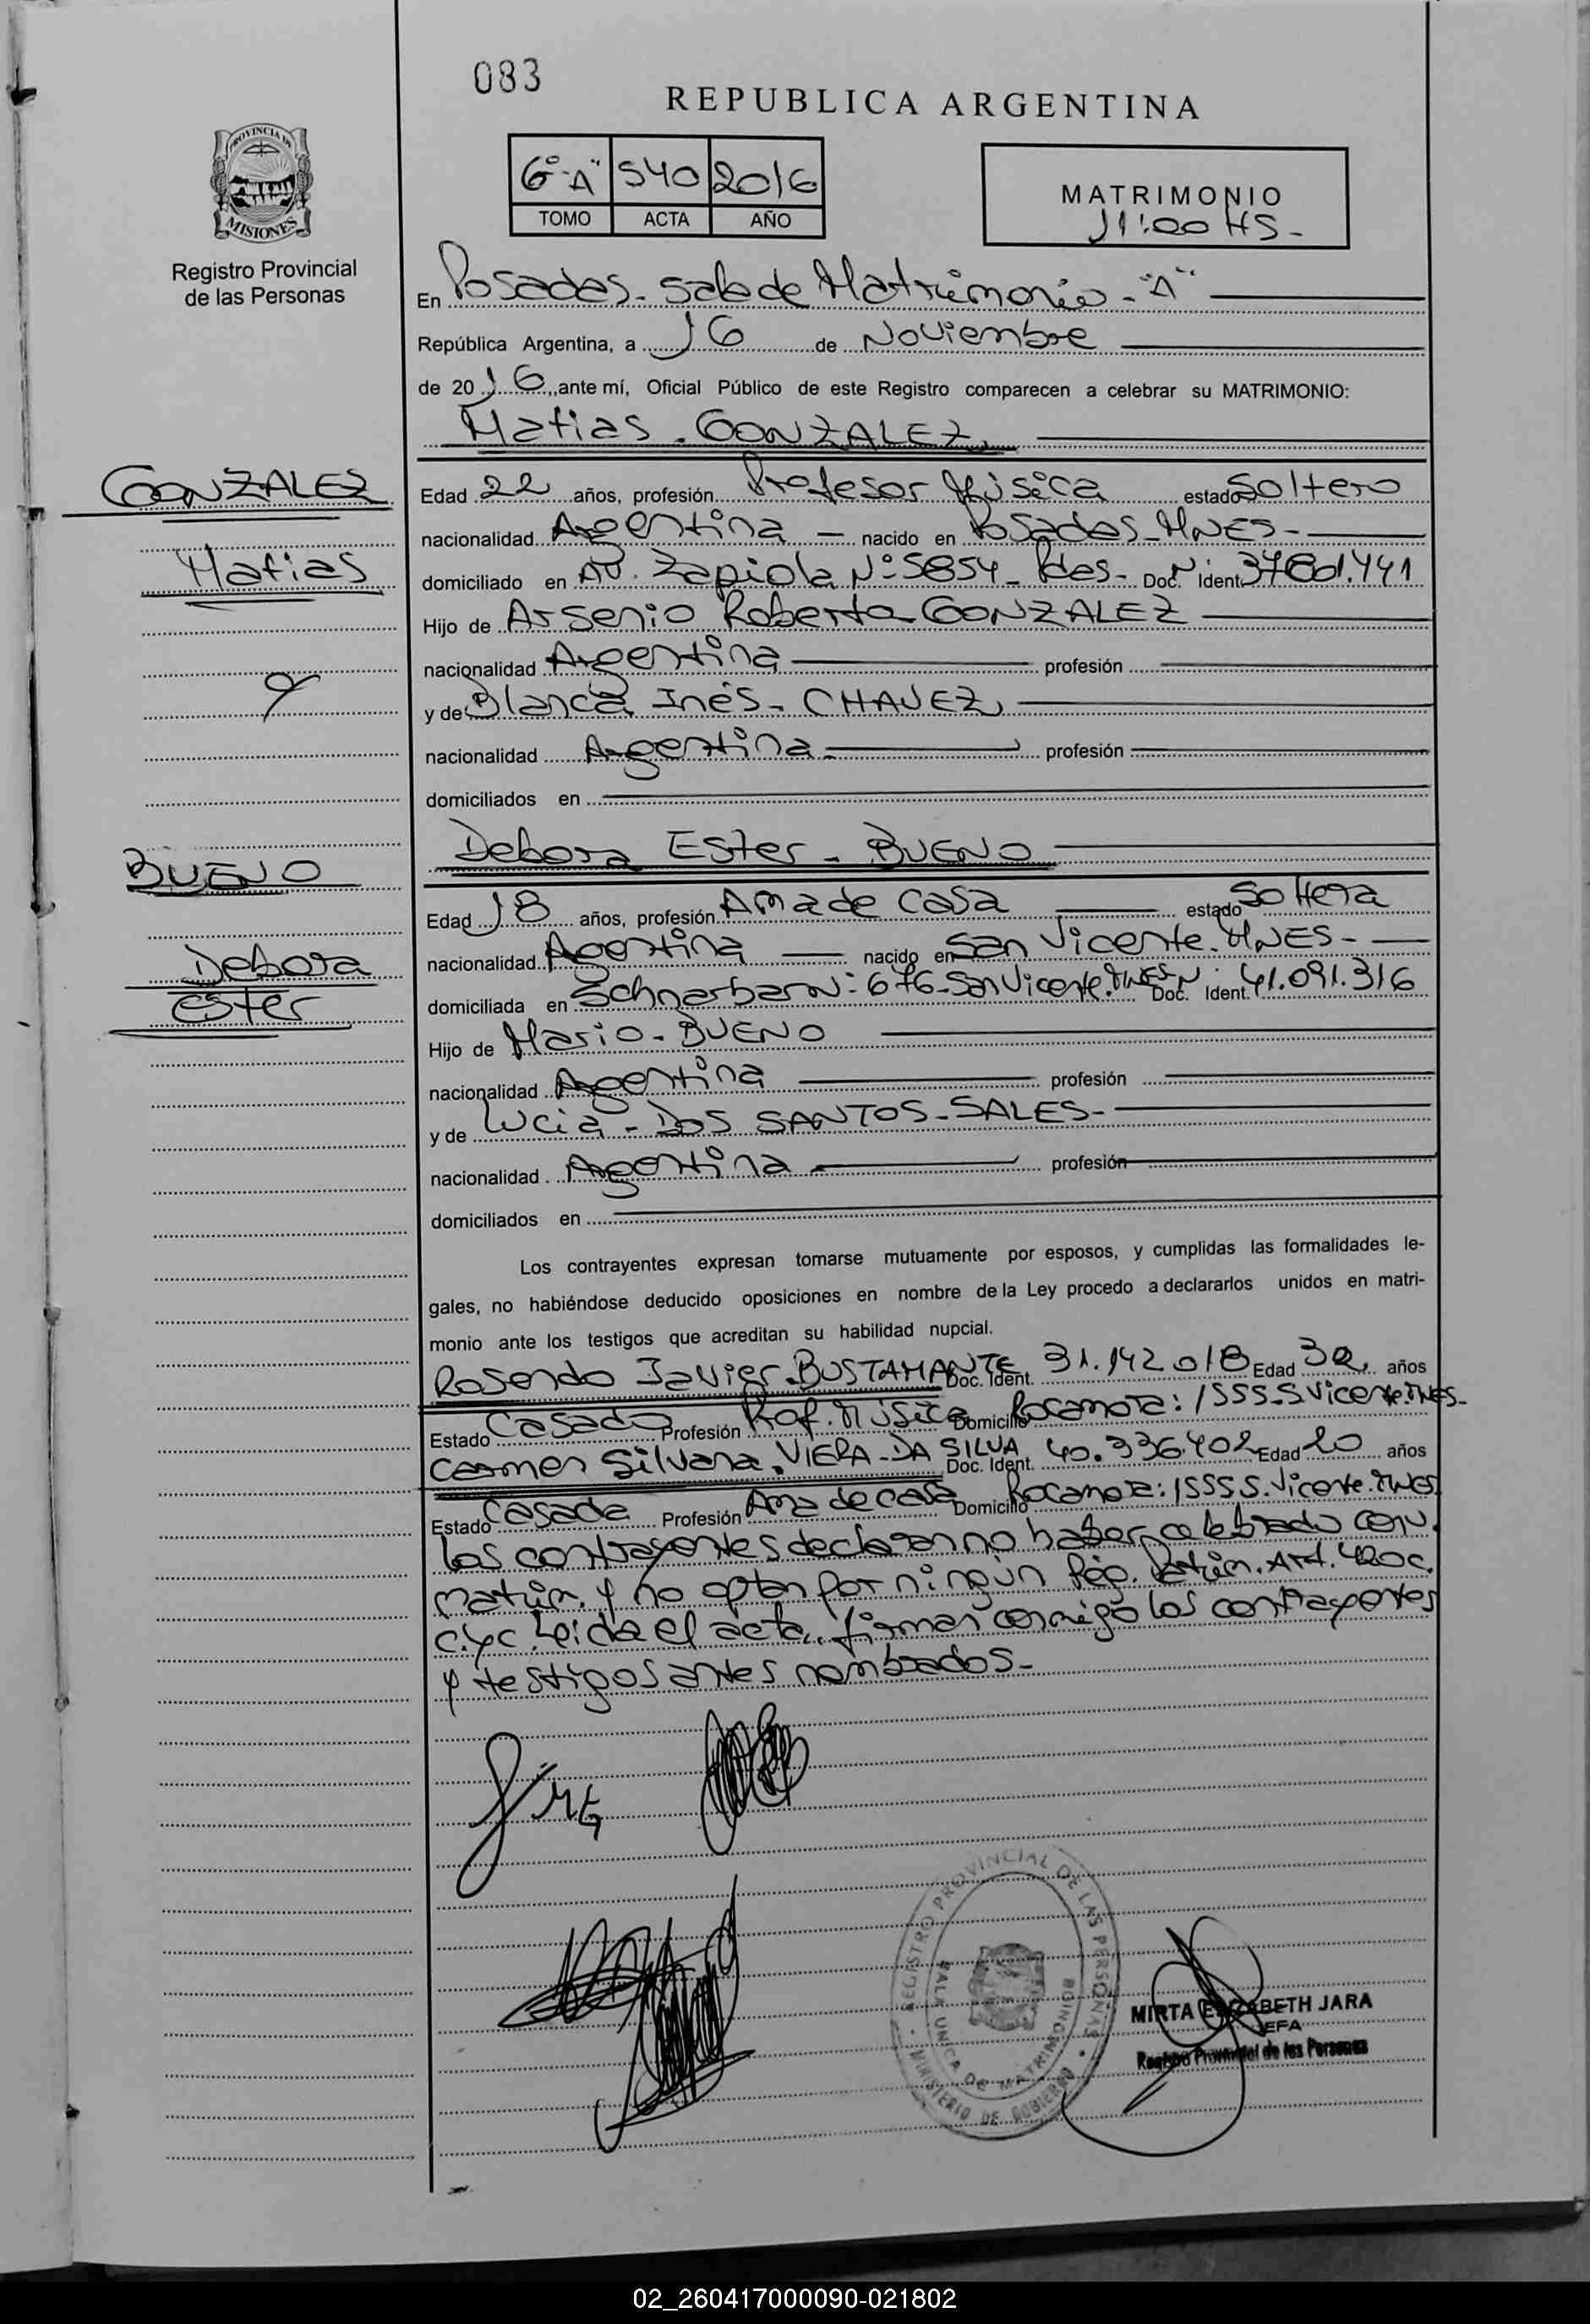 083
REPUBLICA ARGENTINA
6º "A" 540 2016
TOMO ACTA AÑO
MATRIMONIO
11:00 HS-
PROVINCIA DE MISIONES
Registro Provincial
de las Personas
En Posadas - Sala de Matrimonio - "A"
República Argentina, a 16 de Noviembre
de 2016, ante mí, Oficial Público de este Registro comparecen a celebrar su MATRIMONIO:
Matias - GONZALEZ
GONZALEZ
Matias
Edad 22 años, profesión Profesor Música estado Soltero
nacionalidad Argentina - nacido en Posadas - MNES -
domiciliado en AV. Zapiola Nº 5854 - Pdas - Doc. Nº Ident. 441
Hijo de Arsenio Roberto - GONZALEZ
nacionalidad Argentina profesión
y de Blanca Inés - CHAVEZ
nacionalidad Argentina - profesión
domiciliados en
Debora Ester - BUENO
BUENO
Debora
Ester
Edad 18 años, profesión Ama de Casa estado Soltera
nacionalidad Argentina nacido en San Vicente - MNES -
domiciliada en Nº 676 - San Vicente. MNES Doc. Nº Ident. 41.091.316
Hijo de Mario - BUENO
nacionalidad Argentina profesión
y de Lucia - DOS SANTOS - SALES -
nacionalidad Argentina profesión
domiciliados en
Los contrayentes expresan tomarse mutuamente por esposos, y cumplidas las formalidades le-
gales, no habiéndose deducido oposiciones en nombre de la Ley procedo a declararlos unidos en matri-
monio ante los testigos que acreditan su habilidad nupcial.
Rosendo Javier - BUSTAMANTE Doc. Ident. 31.142.018 Edad 32 años
Estado Casado Profesión Prof. Música Domicilio Rocamora: 1555 - S. Vicente. MNES -
Carmen Silvana - VIERA - DA SILVA Doc. Ident. 40.336.402 Edad 20 años
Estado Casada Profesión Ama de casa Domicilio Rocamora: 1555 S. Vicente. MNES
Los contrayentes declaran no haber celebrado conv.
matrim. y no optan por ningún Rég. Patrim. Art. 420 c.
C.yC. Leida el acta, firman conmigo los contrayentes
y testigos antes nombrados -
REGISTRO PROVINCIAL DE LAS PERSONAS
SALA UNICA DE MATRIMONIOS
MINISTERIO DE GOBIERNO
MIRTA ELIZABETH JARA
JEFA
Registro Provincial de las Personas
02_260417000090-021802